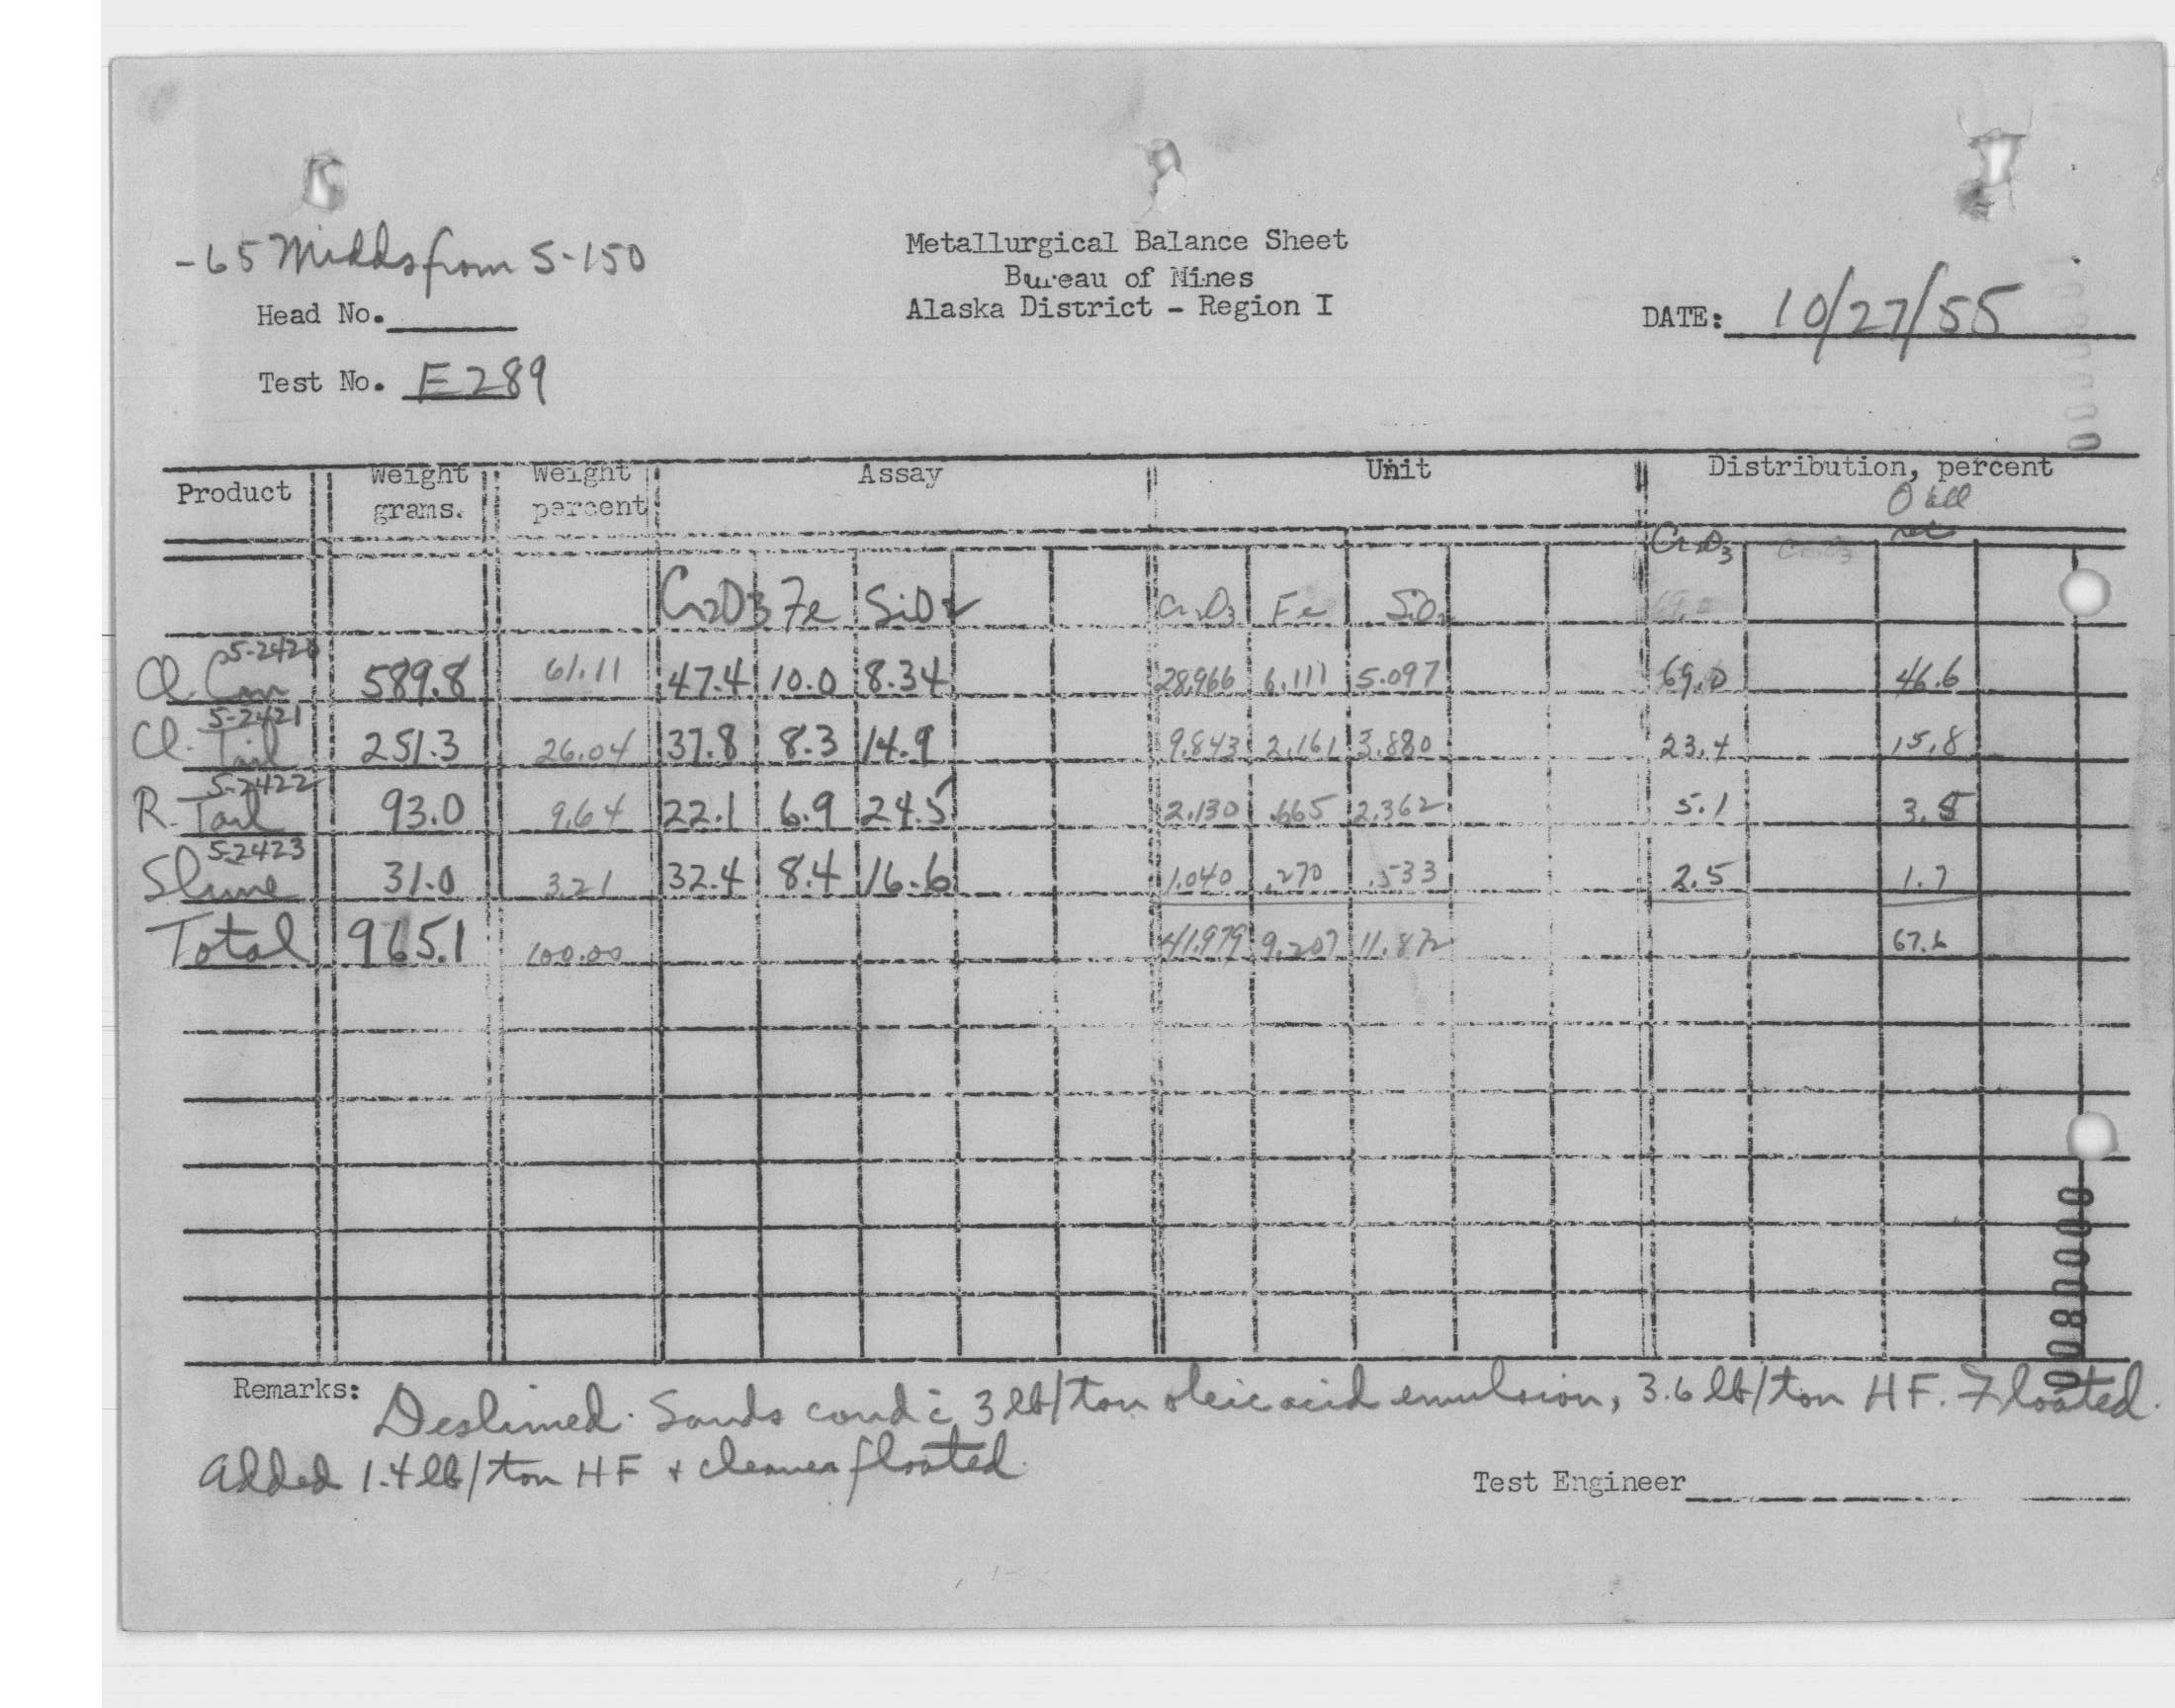 -65 Midds from S-150
Metallurgical Balance Sheet
Bureau of Mines
Alaska District - Region I
Head No.
DATE: 10/27/55
Test No. E289
Product Weight grams. Weight percent Assay Unit Distribution, percent
O'all
rec
Cr2O3 Cr2O3
Cr2O3 Fe SiO2 Cr2O3 Fe SiO2 69.0
S-2420
Cl. Con 589.8 61.11 47.4 10.0 8.34 28.966 6.111 5.097 69.0 46.6
S-2421
Cl. Tail 251.3 26.04 37.8 8.3 14.9 9.843 2.161 3.880 23.4 15.8
S-2422
R. Tail 93.0 9.64 22.1 6.9 24.5 2.130 .665 2.362 5.1 3.5
S-2423
Slime 31.0 3.21 32.4 8.4 16.6 1.040 .270 .533 2.5 1.7
Total 965.1 100.00 41.979 9.207 11.872 67.6
Remarks: Deslimed. Sands cond c̄ 3 lb/ton oleic acid emulsion, 3.6 lb/ton HF. Floated.
Added 1.4 lb/ton HF + cleaner floated.
Test Engineer
0080000